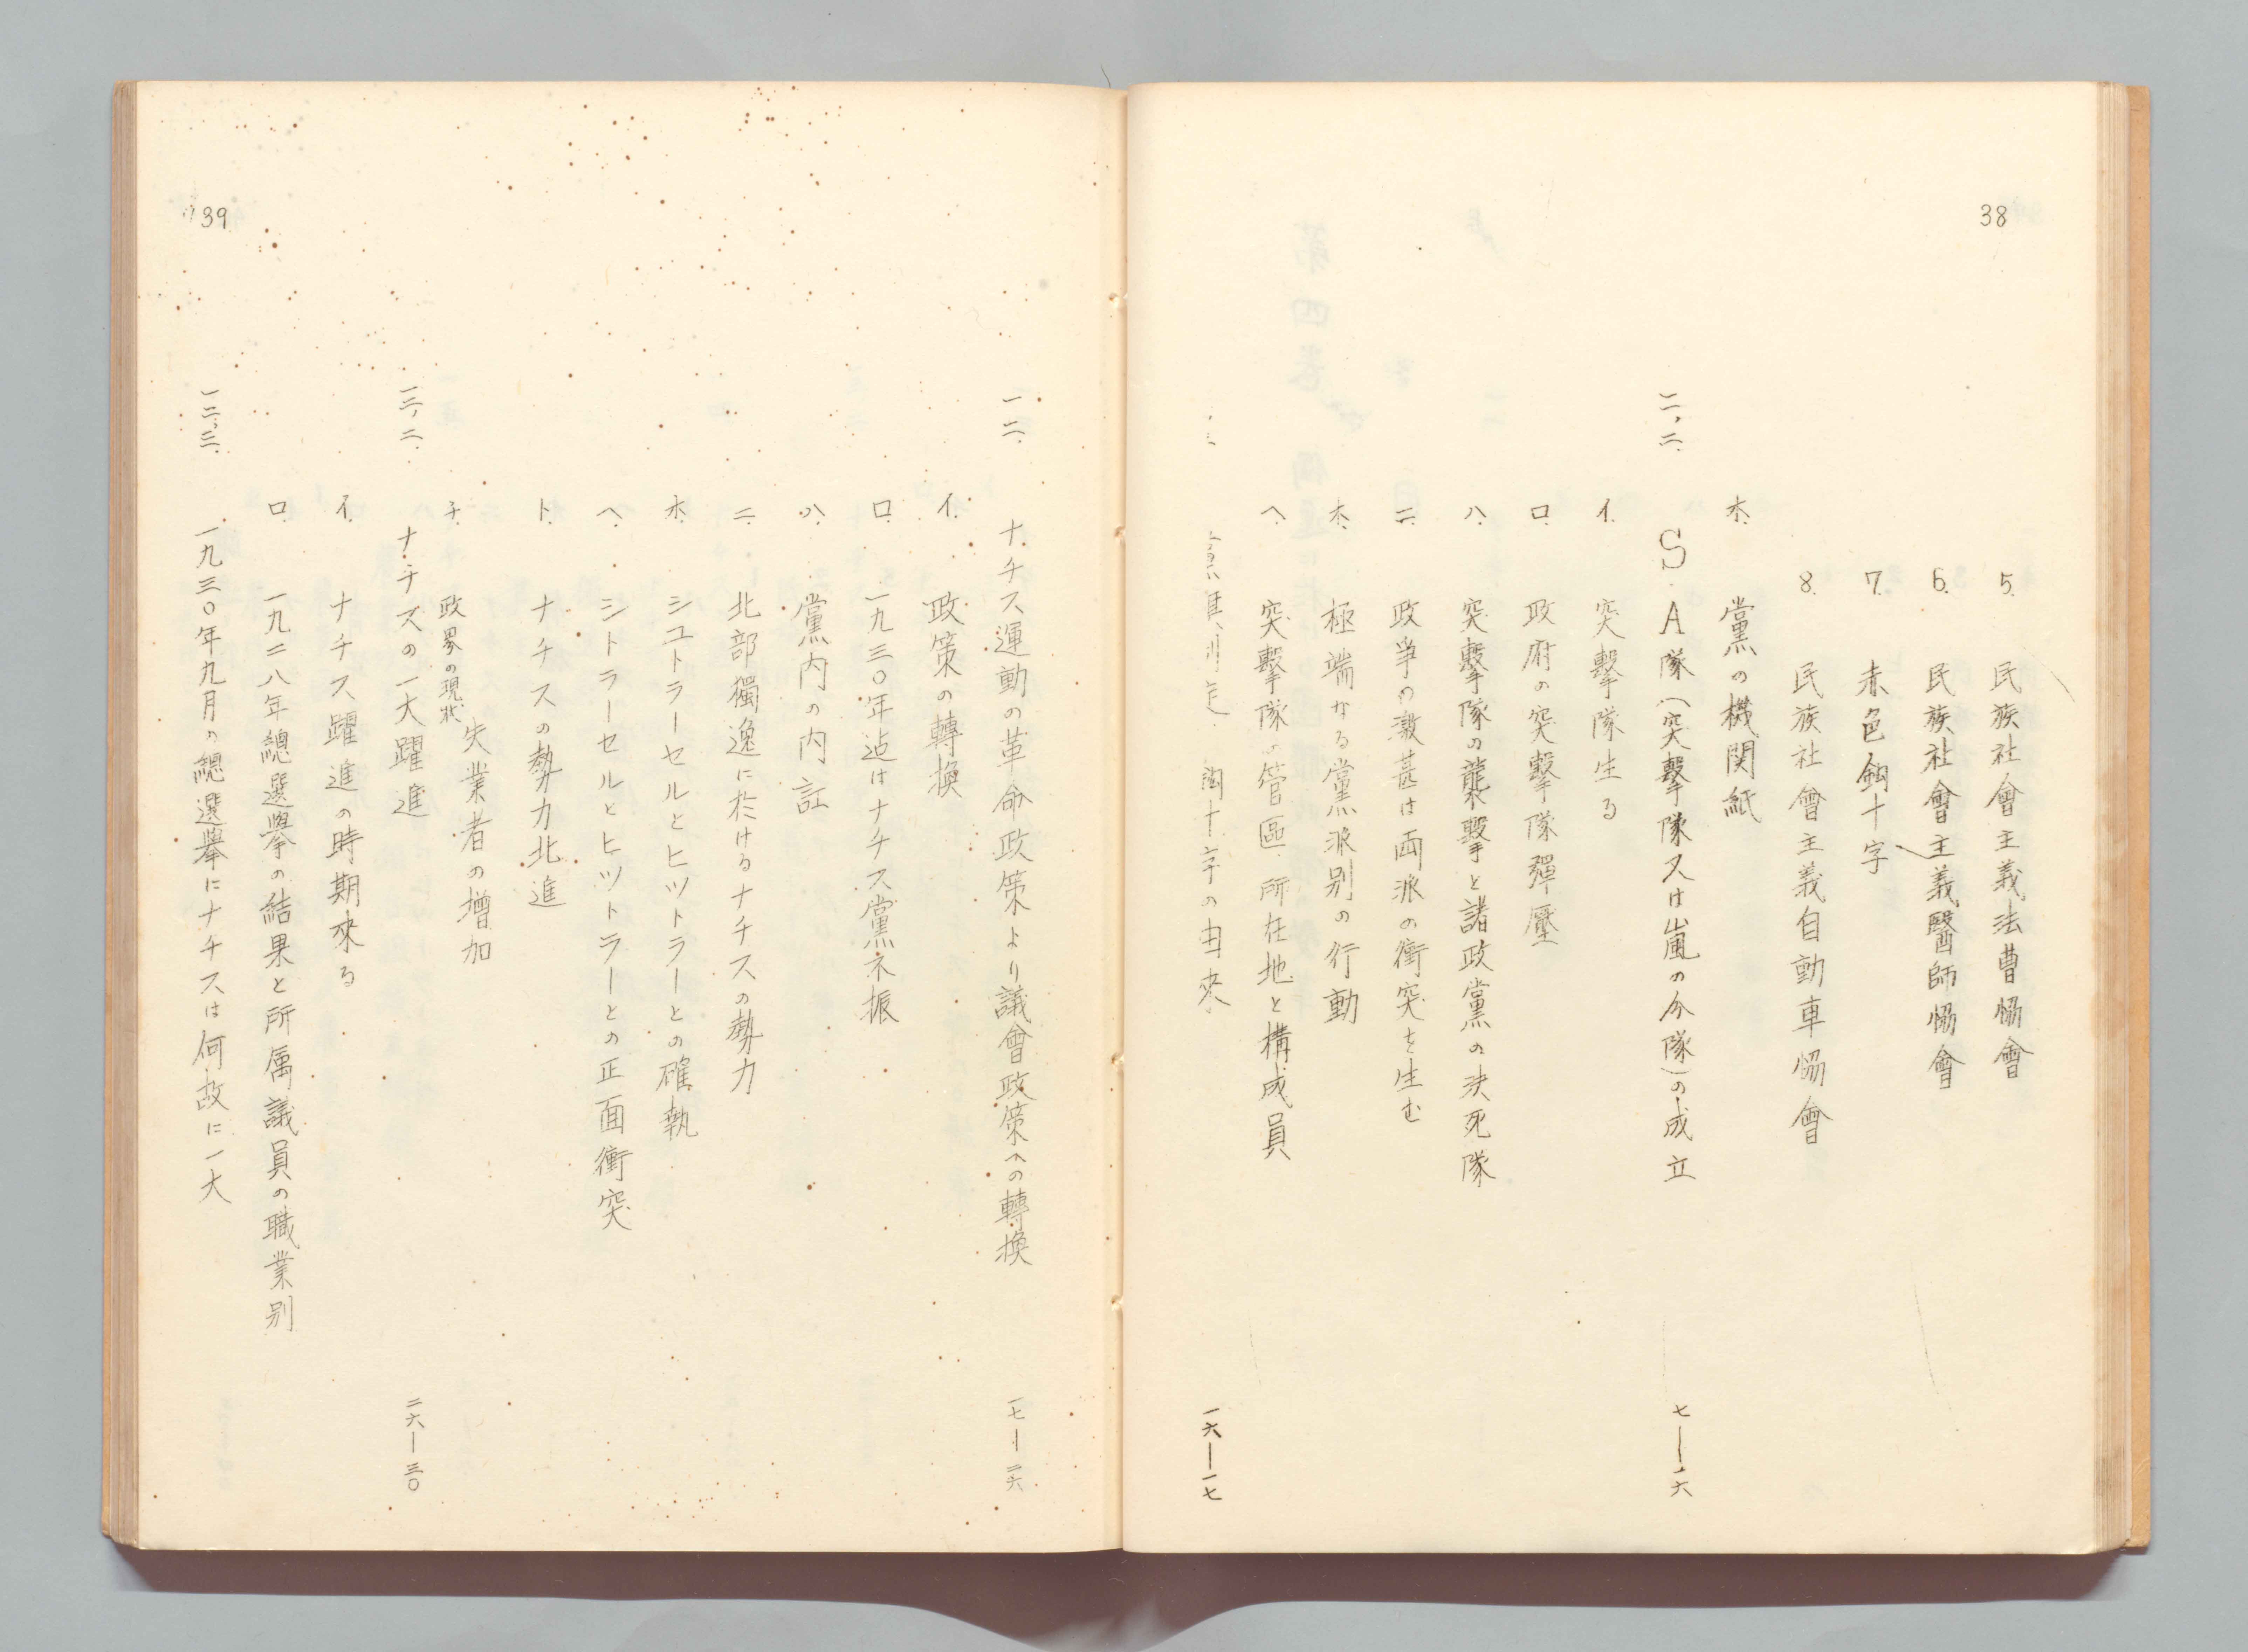 38
5. 民族社會主義法曹恊會
6. 民族社會主義醫師恊會
7. 赤色鈎十字
8. 民族社會主義自動車恊會
ホ. 黨の機関紙
二,二. S.A隊(突擊隊又は嵐の分隊)の成立 七—一六
イ. 突擊隊生る
ロ. 政府の突擊隊彈壓
ハ. 突擊隊の襲擊と諸政黨の決死隊
ニ. 政争の激甚は両派の衝突を生む
ホ. 極端なる黨派別の行動
ヘ. 突擊隊の管區.所在地と構成員
十字の由來 一六—一七
39
一二. ナチス運動の革命政策より議會政策への轉換 一七—二六
イ. 政策の轉換
ロ. 一九三〇年迠はナチス黨不振
ハ. 黨内の内訌
ニ. 北部獨逸に於けるナチスの勢力
ホ. シユトラーセルとヒツトラーとの確執
ヘ. シトラーセルとヒツトラーとの正面衝突
ト. ナチスの勢力北進
チ. 政界の現状 失業者の增加
一三,二. ナチスの一大躍進 二六—三〇
イ. ナチス躍進の時期來る
ロ. 一九二八年總選擧の結果と所属議員の職業別
一三,三. 一九三〇年九月の總選擧にナチスは何故に一大